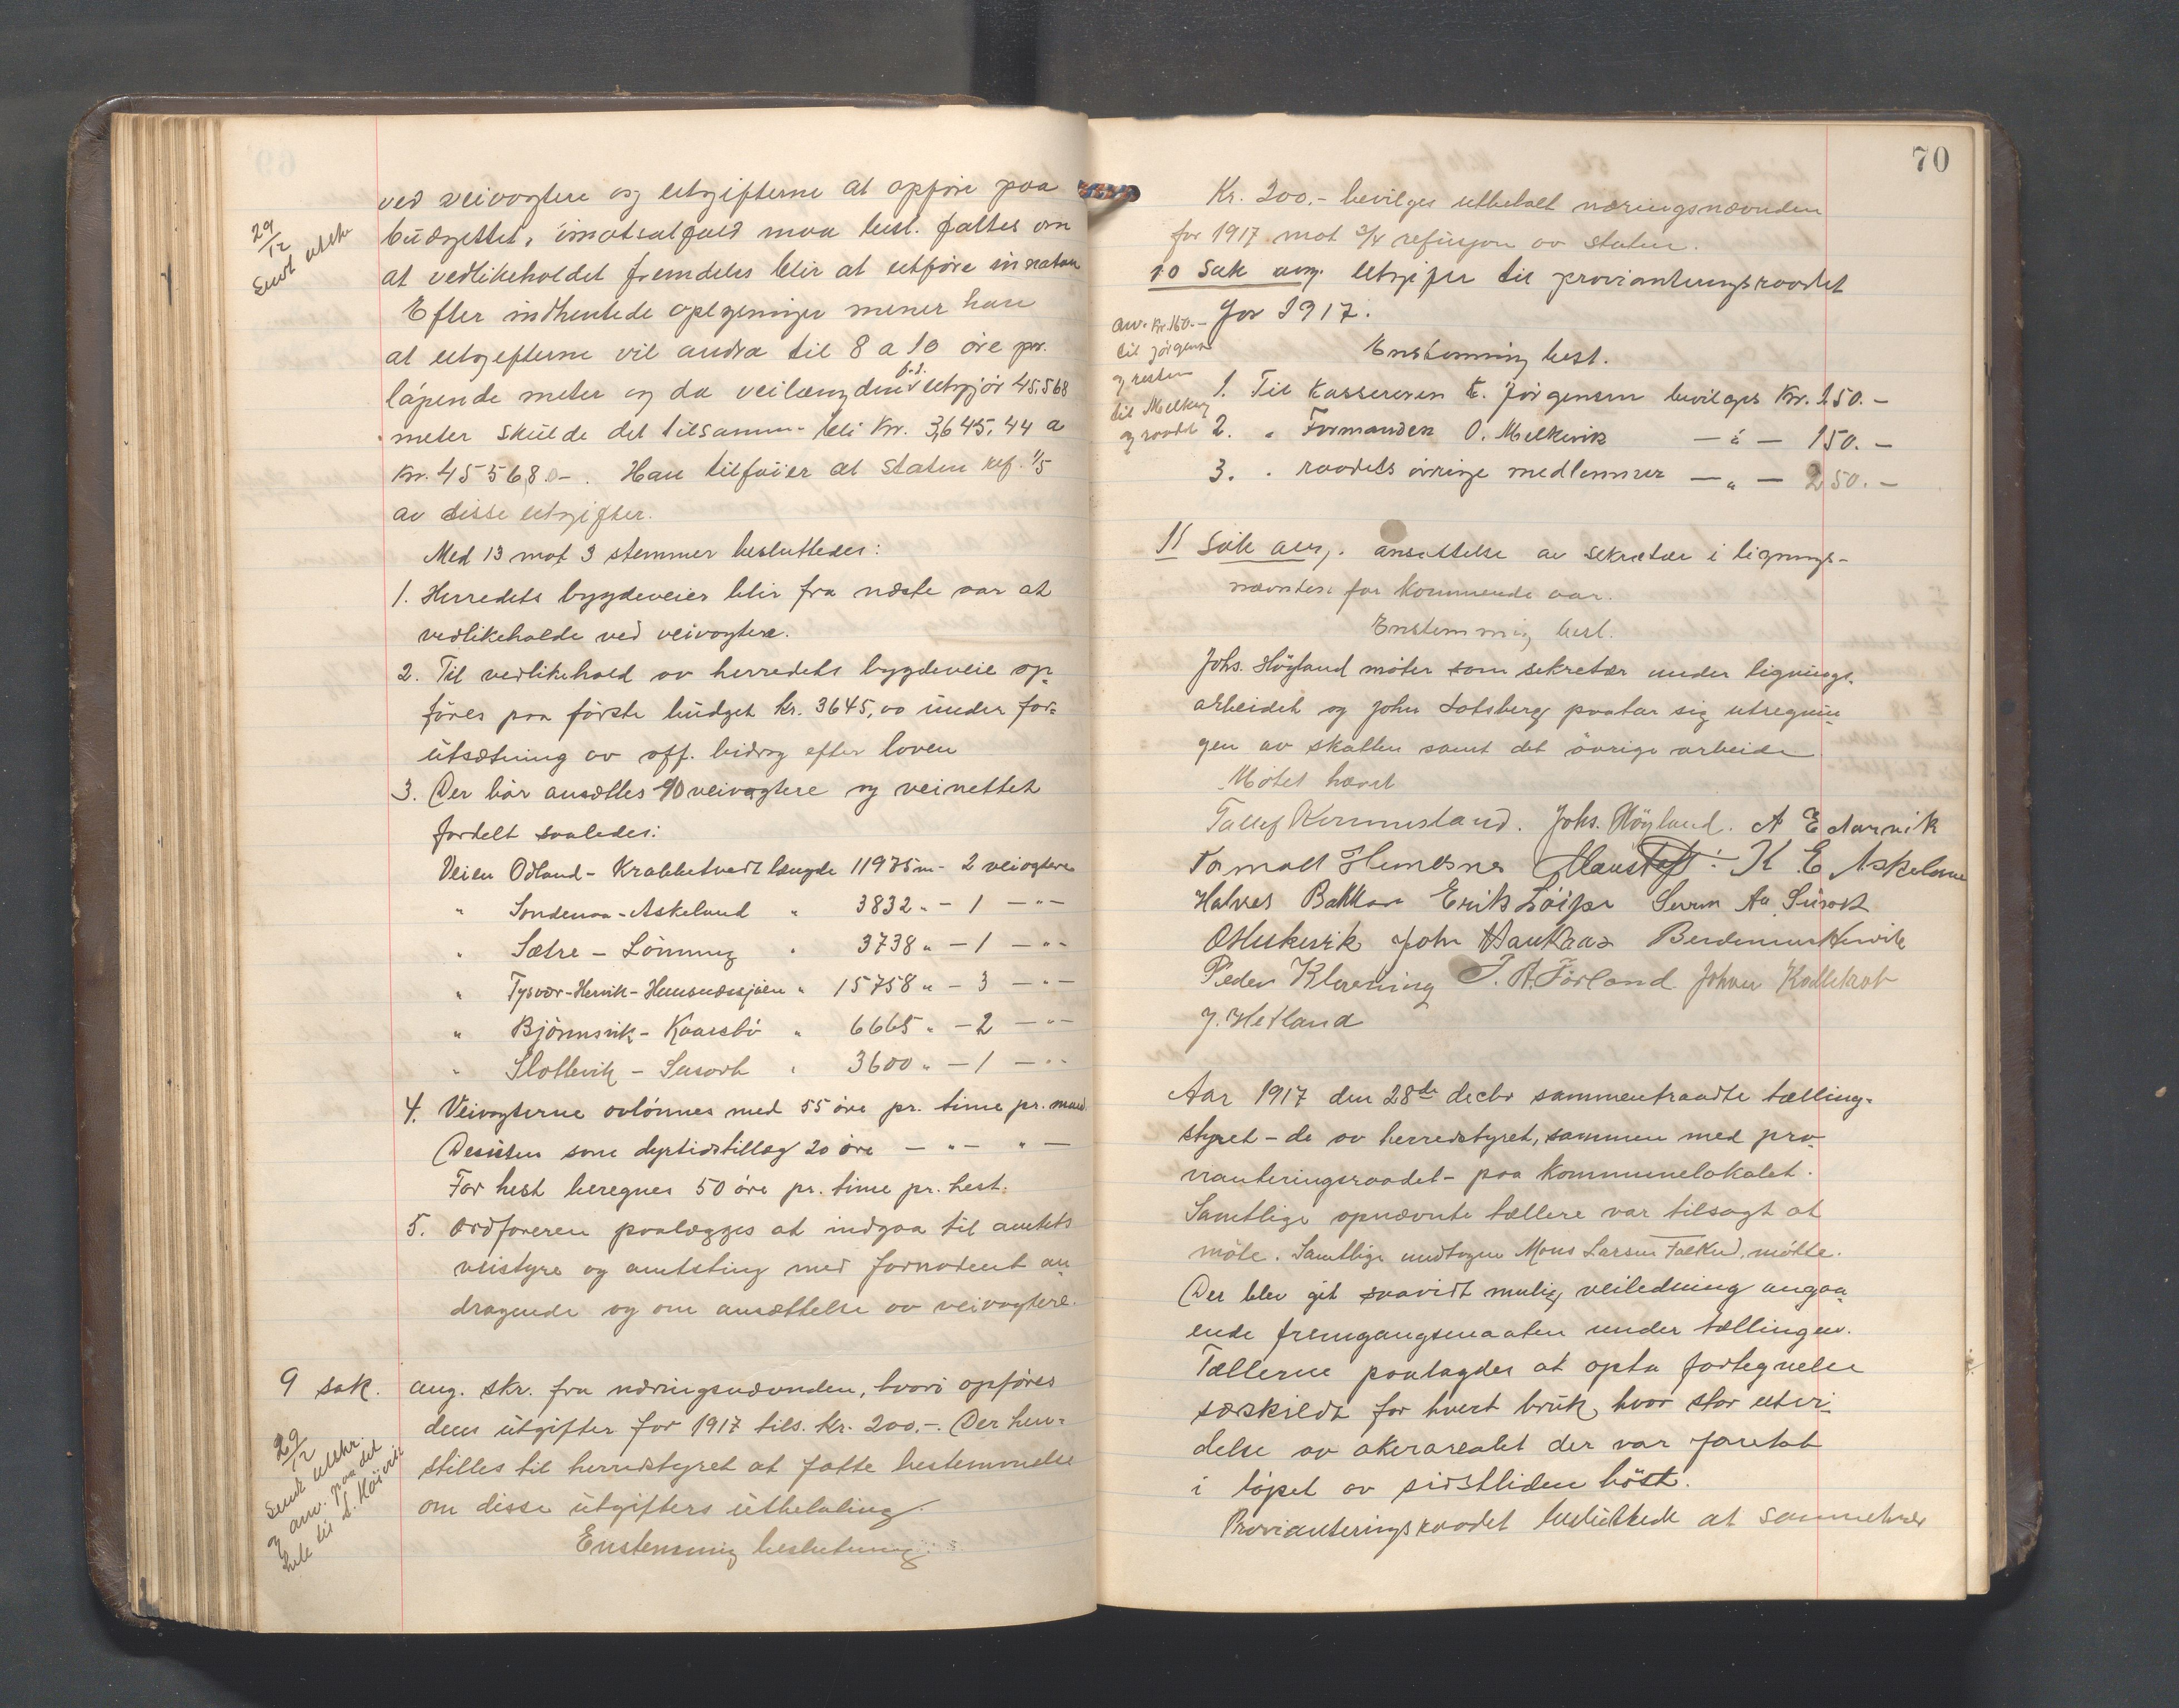 ved veivogtere og utgifterne at opføre paa
budgettet, imotsatfald maa besl. fattes om
at vedlikeholdet fremdeles blir at utføre in natura
29/12
Efter indhentede oplysninger mener han
at utgifterne vil andra til 8 a 10 øre pr.
løpende meter og da veilængden utgjør 45568
meter skulde det tilsamm. bli Kr. 3,645,44 a
Kr. 4556,80-. Han tilføier at staten ref. 1/5
av disse utgifter.
Med 13 mot 3 stemmer besluttedes:
1. Herredets bygdeveier blir fra næste aar at
vedlikeholde ved veivogtere.
2. Til vedlikehold av herredets bygdeveie op-
føres paa første budget kr. 3645,00 under for-
utsætning av off. bidrag efter loven
3. Der bør ansættes 10 veivogtere og veinettet
fordelt saaledes:
Veien Odland - Krabbetvedt længde 11975 m - 2 veivogtere
" Søndenaa - Askeland " 3832 " - 1 - " -
" Sætre - Lønning " 3738 " - 1 - " -
" Tysvær - Hervik - Hemsnæssjøen " 15758 " - 3 - " -
" Bjørnsvik - Kaarsbø " 6665 " - 2 - " -
" Slottevik - Susort " 3600 " - 1 - " -
4. Veivogterne avlønnes med 55 øre pr. time pr. mand
Desuten som dyrtidstillæg 20 øre - " - " -
For hest beregnes 50 øre pr. time pr. hest.
5. Ordføreren paalægges at indgaa til amtets
veistyre og amtsting med fornødent an-
dragende og om ansættelse av veivogtere.
9 sak. ang. skr. fra næringsnævnden, hvori opføres
dens utgifter for 1917 tils. kr. 200.-. Der hen-
stilles til herredstyret at fatte bestemmelse
om disse utgifters utbetaling.
Enstemmig beslutning:
29/12
Sendt utskr.
og anv. paa det
hele til
70
Kr. 200.- bevilges utbetalt næringsnævnden
for 1917 mot 3/4 refusjon av staten.
10 Sak ang. Utgifter til provianteringsraadet
for 1917.
anv. kr. 160.-
til Jørgensen
og resten
til Melkevig
og raadet
Enstemmig besl.
1. Til Kassereren E. Jørgensen bevilges Kr. 250.-
2. " Formanden O. Melkevik - " - 150.-
3. " raadets øvrige medlemmer - " - 250.-
11 Sak ang. ansættelse av sekretær i lignings-
nævnden for kommende aar.
Enstemmig besl.
Johs. Høyland møter som sekretær under lignings-
arbeidet og John Lotsberg paatar sig utregnin-
gen av skatten samt det øvrige arbeide
Møtet hævet
Tallef Kommeland. Johs. Høyland. A E Aarvik
Tormod Hemesnes K. E. Askeland
Halvor Bakkan Erik Løipe Susort
O Melkevik John Haukaas Berdinius Hervik
Peder Klovning T. A. Førland. Johan Kadlekrot
J. Hetland
Aar 1917 den 28de decbr sammentraadte tælling-
styret - de av herredstyret, sammen med pro-
vianteringsraadet - paa kommunelokalet.
Samtlige opnævnte tællere var tilsagt at
møte. Samtlige undtagen Mons Larsen Falkeid, møtte.
Der blev git saavidt mulig veiledning angaa-
ende fremgangsmaaten under tællingen.
Tællerne paalagdes at opta fortegnelse
særskildt for hvert bruk, hvor stor utvi-
delse av akerarealet der var foretat
i løpet av sidstliden høst.
Provianteringsraadet besluttede at